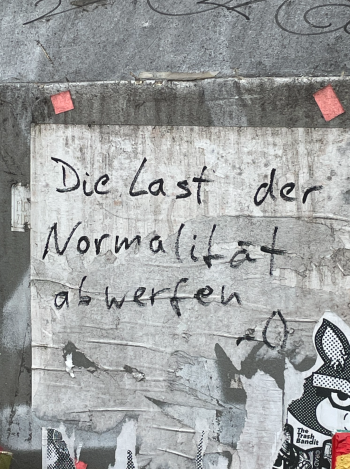 Die Last der
Normalität
abwerfen
The
Trash
Bandit